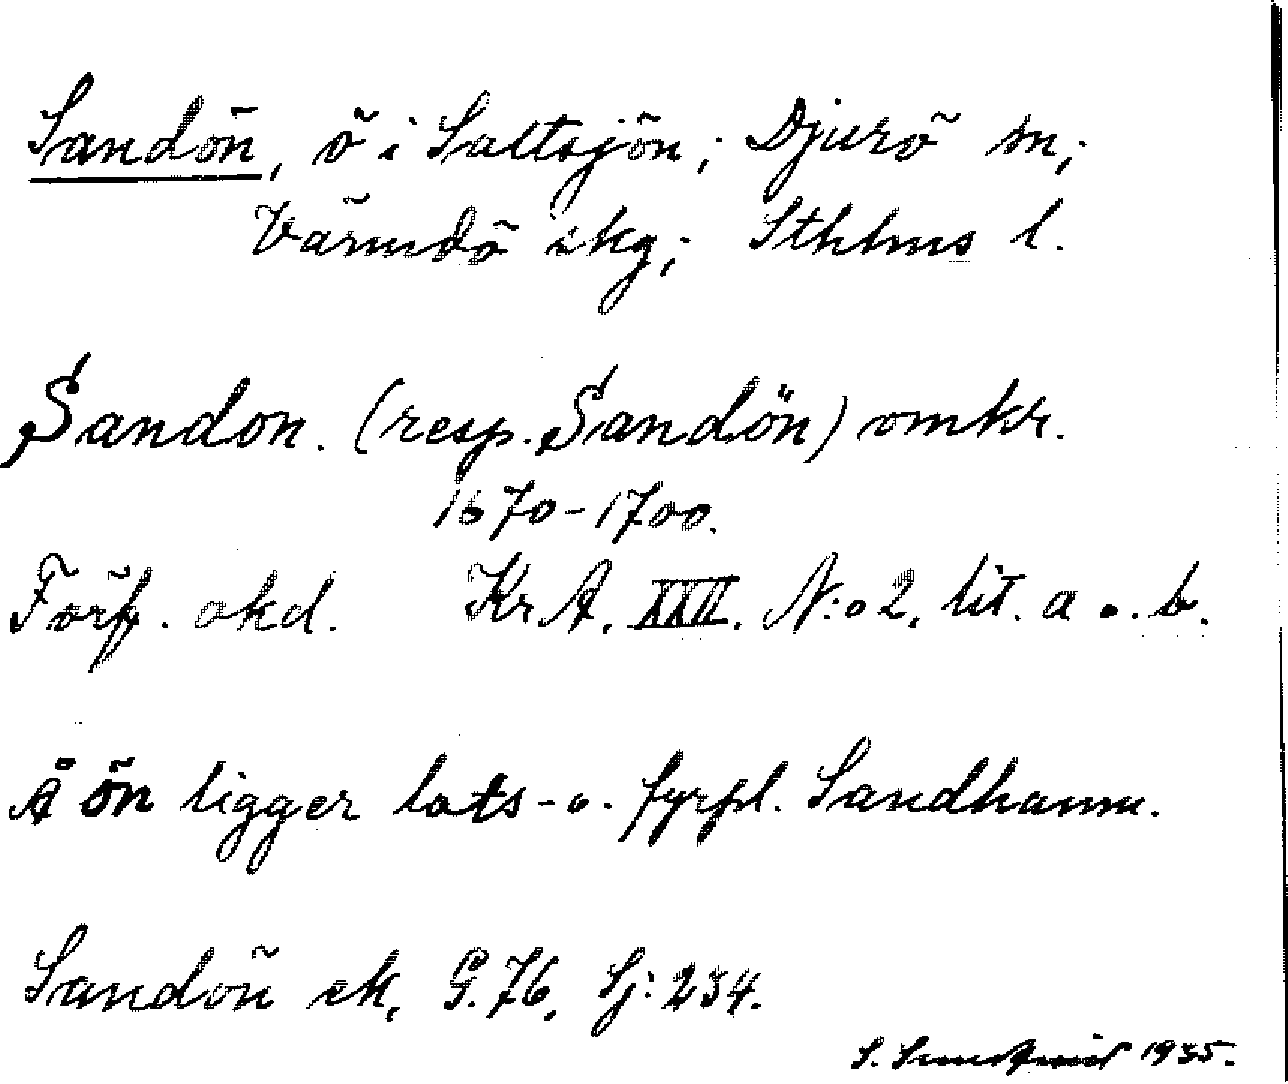 Sandön, ö i Saltsjön; Djurö sn;
Värmdö skg; Sthlms l.
Sandon. (resp. Sandön) omkr.
1670-1700.
Förf. okd. Kr A. XXII. N:o 2. lit. a o. b.
Å ön ligger lots- o. fyrpl. Sandhamn.
Sandön ek, G. 76, Sj: 234.
S. 1935.